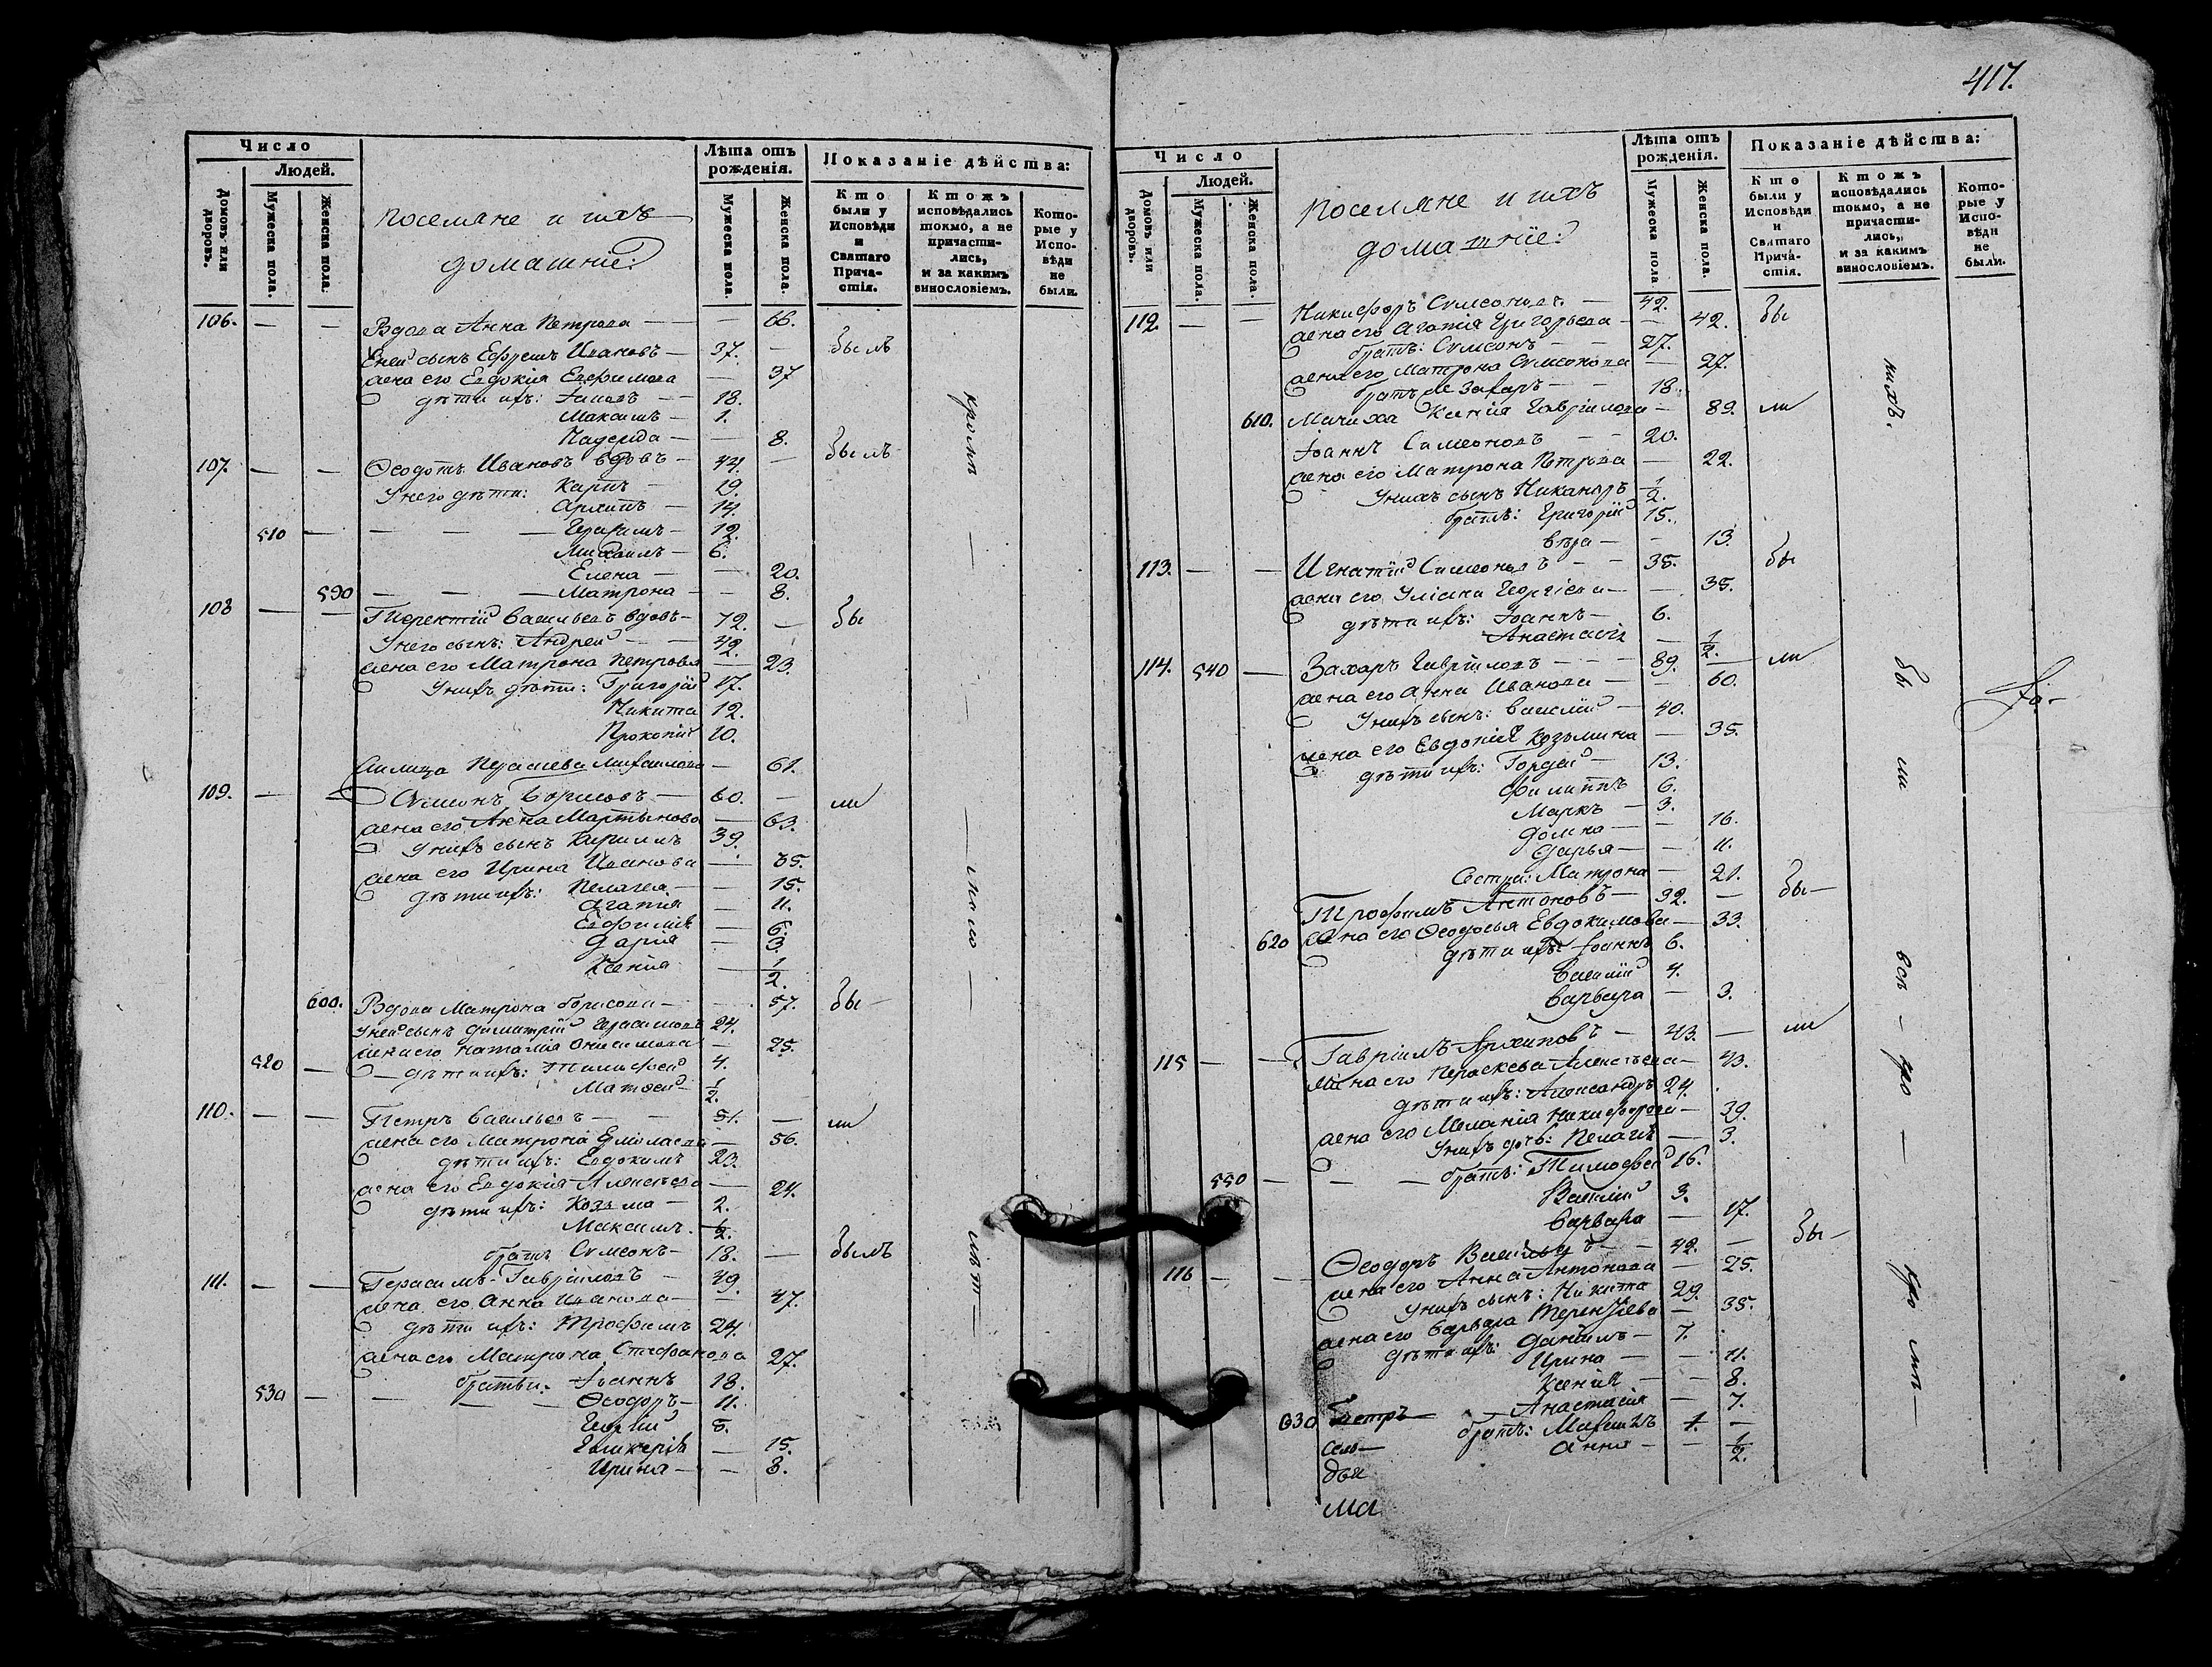 417.
Число
Людей.
Домовъ или дворовъ.
Мужеска пола.
Женска пола.
поселяне и ихъ
домашніе:
Лѣта отъ рожденія.
Мужеска пола.
Женска пола.
Показаніе дѣйства:
Кто были у Исповѣди и Святаго Прича-стія.
Ктожъ исповѣдались токмо, а не причасти-лись, и за какимъ винословіемъ.
Кото-рые у Испо-вѣди не были.
106. — — Вдова Анна Петрова — — 66.
Ея сынъ Ефремъ Ивановъ — 37. — былъ
жена его Евдокія Евфимова — 37
дѣти ихъ: — 18.
Максимъ — 1.
Надежда — — 8.
107. — — Ѳеодотъ Ивановъ вдовъ — 44. — былъ
У него дѣти: Карпъ — 19.
Архипъ — 14.
510 — — — — Герасимъ — 12.
Михаилъ — 6.
Елена — — 20.
590 — — — Матрона — — 8.
108 — — Терентій Васильевъ вдовъ — 72. — бы
У него сынъ: Андрей — 42.
жена его Матрона Петрова — 23.
У нихъ дѣти: Григорій 17.
Никита 12.
Прокопій 10.
Михаилова — 61.
109. — — Сѵмеонъ Борисовъ — 60. — ли
жена его Анна Мартынова — 63.
У нихъ сынъ Кириллъ 39.
жена его Ирина Иванова — 35.
дѣти ихъ: Пелагея — — 15.
Агапія — 11.
Евфимія — 6.
Дарія — 3.
Ксенія — 1/2.
600. Вдова Матрона Борисова — — 57. бы —
У ней сынъ Димитрій Герасимовъ 24.
жена его Наталія Онисимова — 25.
520 — — дѣти ихъ: Тимофей 4.
Матѳей — 1/2.
110. — — Петръ Васильевъ — — 51. — ли
жена его Матрона Ермолаева — 56.
дѣти ихъ: Евдокимъ 23.
жена его Евдокія Алексѣева — 24.
дѣти ихъ: Козьма — 2.
Максимъ. 1/2.
братъ Сѵмеонъ — 18. — былъ
111. — — Герасимъ Гавріиловъ — 49.
жена его Анна Иванова — — 47.
дѣти ихъ: Трофимъ 24.
жена его Матрона Стефанова 27.
братья: Іоаннъ 18.
530 — — — — Ѳеодоръ — 11.
Георгій 8.
Гликерія — 15.
Ирина — — 8.
кромѣ — —
— мало —
лѣт —
Число
Людей.
Домовъ или дворовъ.
Мужеска пола.
Женска пола.
поселяне и ихъ
домашніе:
Лѣта отъ рожденія.
Мужеска пола
Женска пола.
Показаніе дѣйства:
Кто были у Исповѣди и Святаго Прича-стія.
Ктожъ исповѣдались токмо, а не причасти-лись, и за какимъ винословіемъ.
Кото-рые у Испо-вѣди не были.
112. — — Никифоръ Сѵмеоновъ — 42. бы
жена его Агапія Григорьева — — 42.
братъ: Сѵмеонъ — — 27.
жена его Матрона Сѵмеонова — 27.
братъ же Захаръ — — 18.
610. Мачиха Ксенія Гавріилова — 89. ли
Іоаннъ Симеоновъ — — 20.
жена его Матрона Петрова — 22.
У нихъ сынъ Никаноръ 1/2.
братъ: Григорій 15.
Вѣра — — 13.
113. — — Игнатій Симеоновъ — — 35. бы
жена его Георгіева — — 35.
дѣти ихъ: Іоаннъ — 6.
Анастасія — 1/2.
114. 540 — Захаръ Гавріиловъ — — — 89. — ли
жена его Анна Иванова — — 60.
У нихъ сынъ: Василій — 40.
жена его Евдокія Козьмина — 35.
дѣти ихъ: Гордѣй — 13.
Филиппъ 6.
Маркъ — 3.
Домна — — 16.
Дарья — — 11.
Сестра: Матрона — 21.
Трофимъ Антоновъ — 32. — бы —
620 жена его Ѳеодосья Евдокимова — 33.
дѣти ихъ: Іоаннъ 6.
Василій 4.
Варвара — 3.
115 — — Гавріилъ Архиповъ — 43. — ли
жена его Параскева Алексѣева — 43.
дѣти ихъ: Александръ 24.
жена его Меланія Никифорова — 29.
У нихъ дочь: Пелагія — 3.
550 — — — братъ: Тимофей 16.
Василій 3.
Варвара — 17.
116 — — Ѳеодоръ Васильевъ — — 42. — бы —
жена его Анна Антонова — 25.
У нихъ сынъ: Никита 29.
жена его Варвара Терентіева — 35.
дѣти ихъ: Даніилъ — 7.
Ирина — — 11.
Ксенія — — 8.
Анастасія — 7.
630 братъ: Михаилъ 1. —
Анна — — 1/2.
Петръ —
нихъ.
бы ли всѣ — кро — кро мѣ —